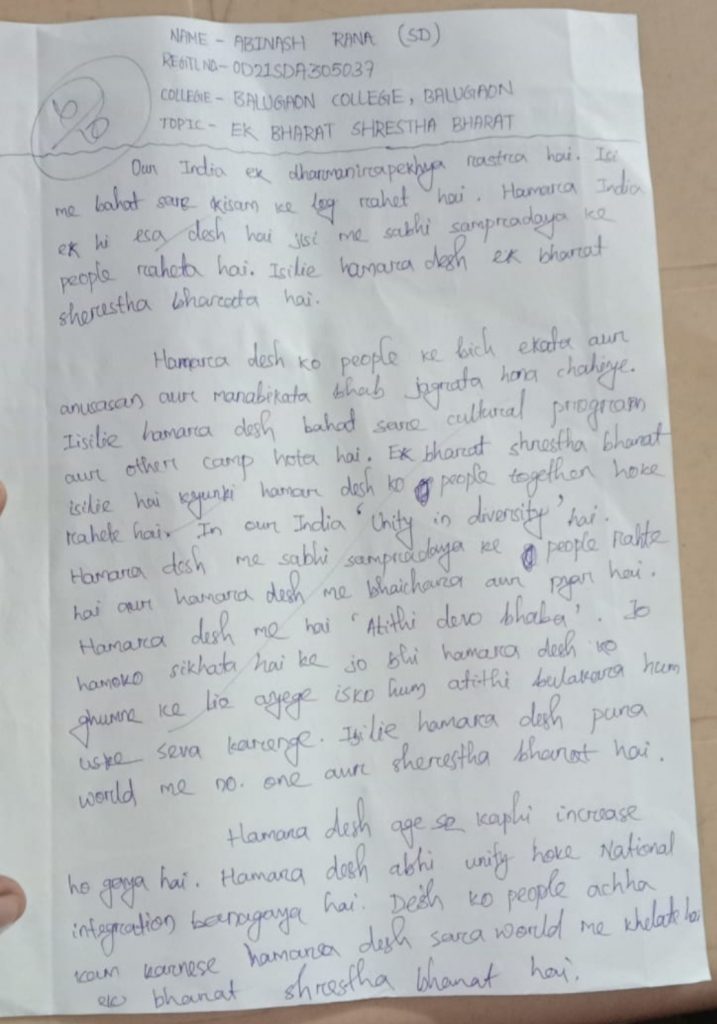 NAME - ABINASH RANA (SD)
REGTL NO - OD21SDA305037
COLLEGE - BALUGAON COLLEGE, BALUGAON
TOPIC - EK BHARAT SHRESTHA BHARAT
6/10
Our India ek dharmanirapekhya rastra hai. Isi
me bahat sare kisam ke log rahet hai. Hamara India
ek hi esa desh hai jisi me sabhi sampradaya ke
people raheta hai. Isilie hamara desh ek bharat
sherestha bharata hai.
Hamara desh ko people ke bich ekata aur
anusasan aur manabikata bhab jagrata hona chahiye.
Iisilie hamara desh bahat sare cultural program
aur other camp hota hai. Ek bharat shrestha bharat
isilie hai kyunki hamar desh ko people together hoke
rahete hai. In our India 'Unity in diversity' hai.
Hamara desh me sabhi sampradaya ke people rahte
hai aur hamara desh me bhaichara aur pyar hai.
Hamara desh me hai 'Atithi devo bhaba'. Jo
hamoko sikhata hai ke jo bhi hamara desh ko
ghumne ke lie ayege isko hum atithi bulakara hum
uske seva karenge. Isilie hamara desh pura
world me no. one aur sherestha bharat hai.
Hamara desh age se kaphi increase
ho gaya hai. Hamara desh abhi unify hoke National
integration banagaya hai. Desh ko people achha
kam karnese hamara desh sara world me khelate hai
ek bharat shrestha bharat hai.